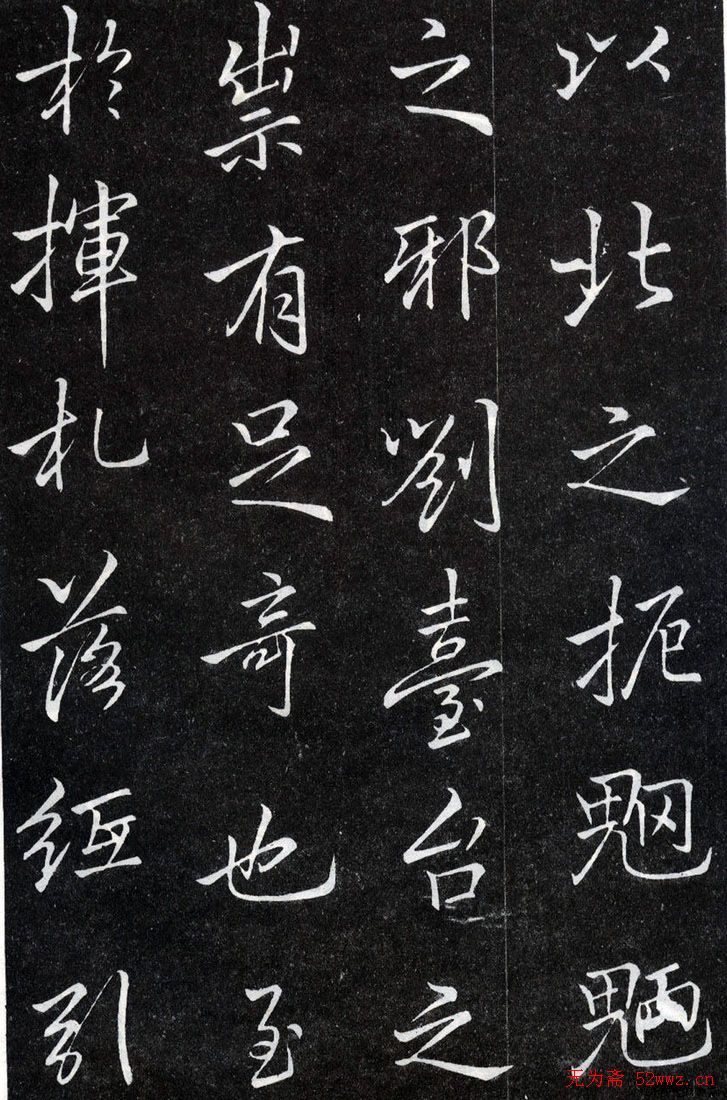 以此之扼魍魎
之邪劉臺台之
祟有足奇也至
於揮札落紙引
无为斋 52wwz.cn